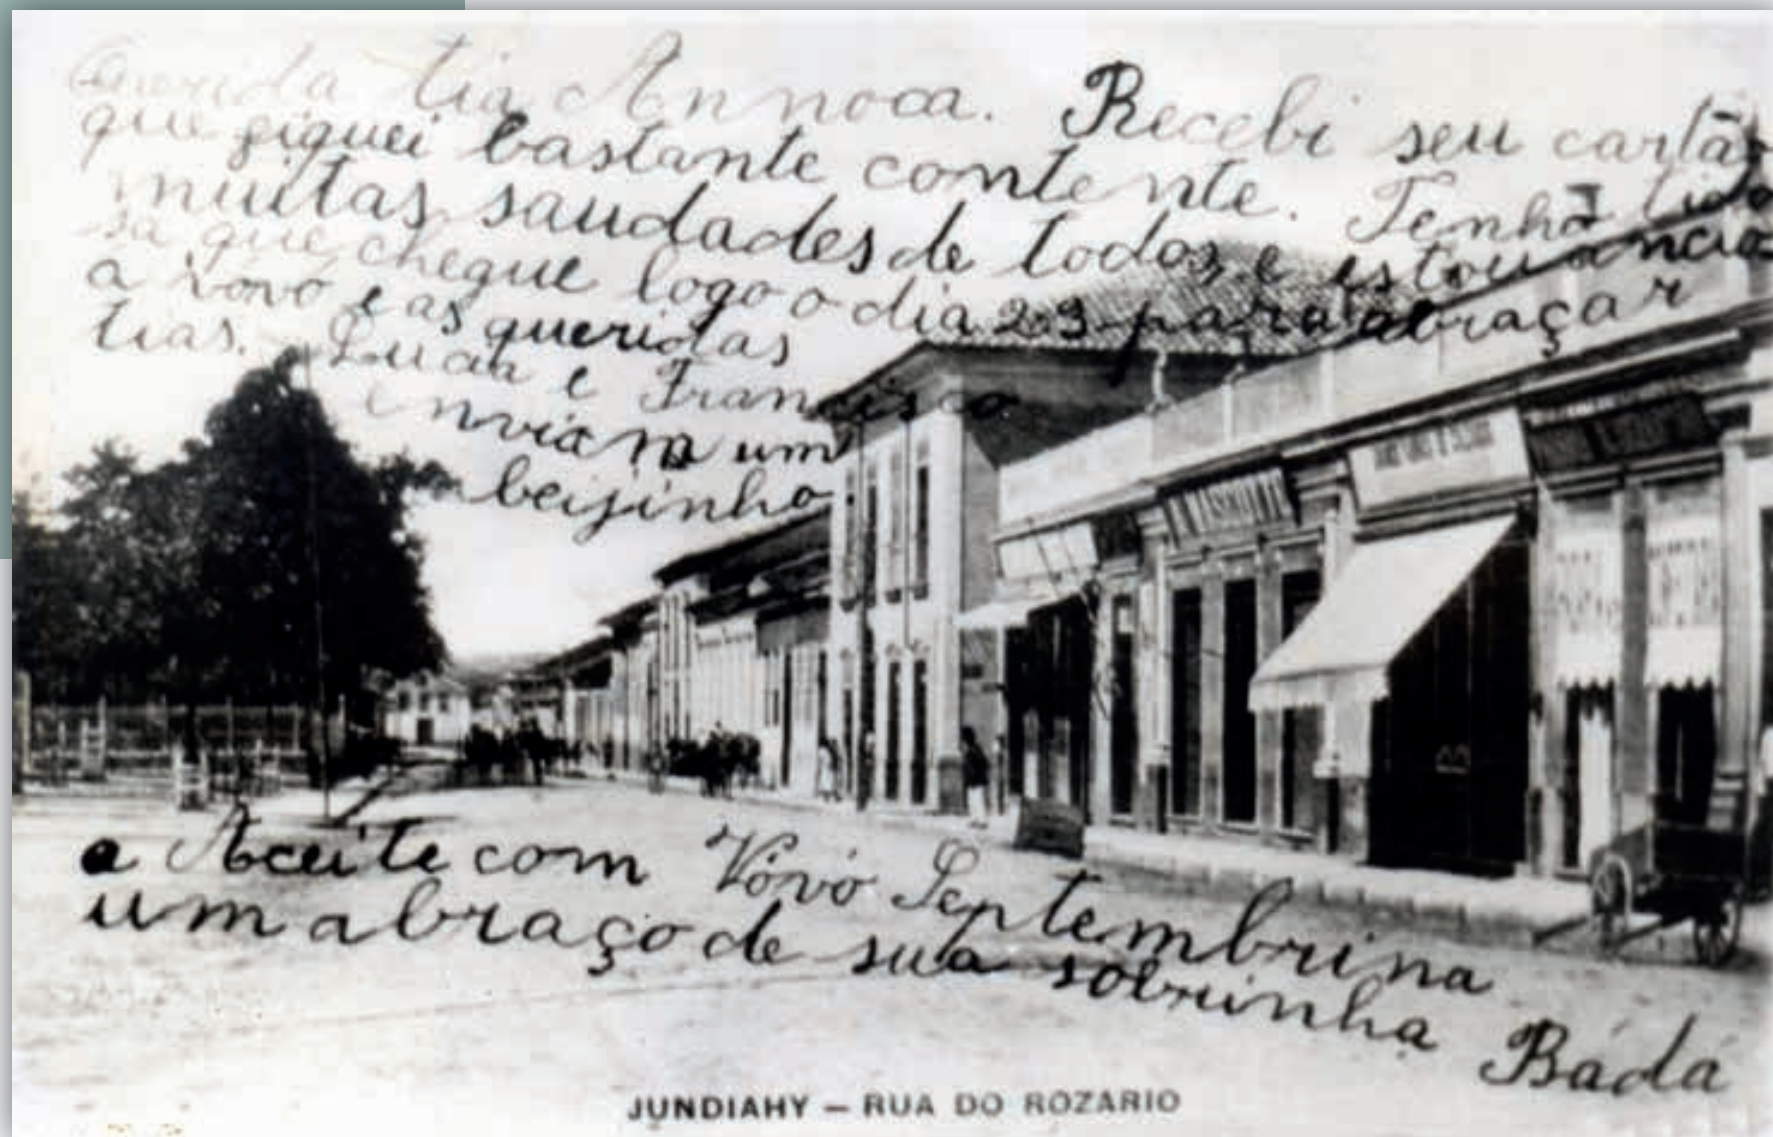 Querida tia Annoca. Recebi seu cartão
que fiquei bastante contente. Tenho tido
muitas saudades de todos e estou ancio
sa que chegue logo o dia 23 para abraçar
a vovó e as queridas
tias. Lucia e Francisco
enviam um
beijinho.
PASCHOAL
a Aceite com Vóvó Septembrina
um abraço de sua sobrinha Bádá
JUNDIAHY — RUA DO ROZARIO